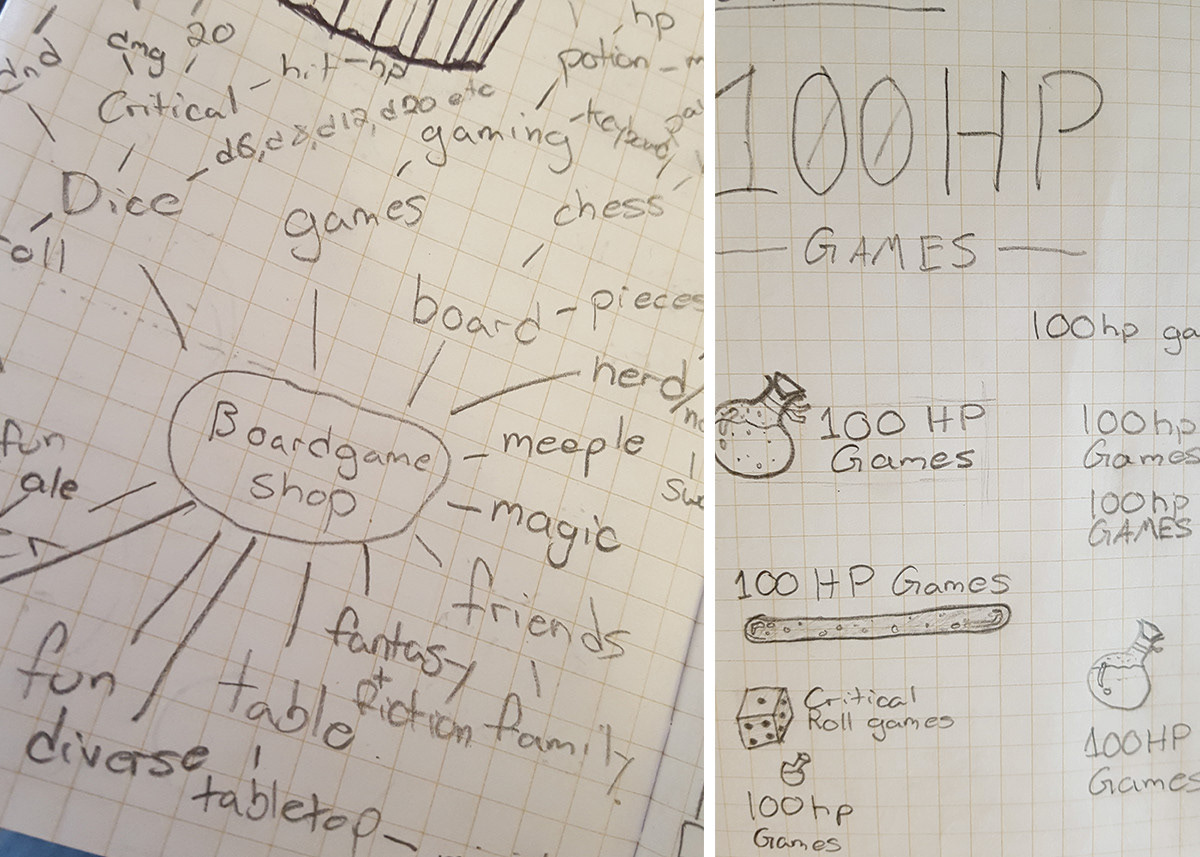 dnd
dmg
20
Critical
hit-hp
hp
potion
d6, d8, d12, d20 etc
gaming
Dice
games
chess
board - pieces
nerd
Boardgame
shop
meeple
magic
fun
ale
friends
fantasy
+
fiction
family
fun
table
diverse
tabletop
100 HP
GAMES
100hp ga
100 HP
Games
100hp
Games
100hp
GAMES
100 HP Games
Critical
Roll games
100HP
Games
100hp
Games